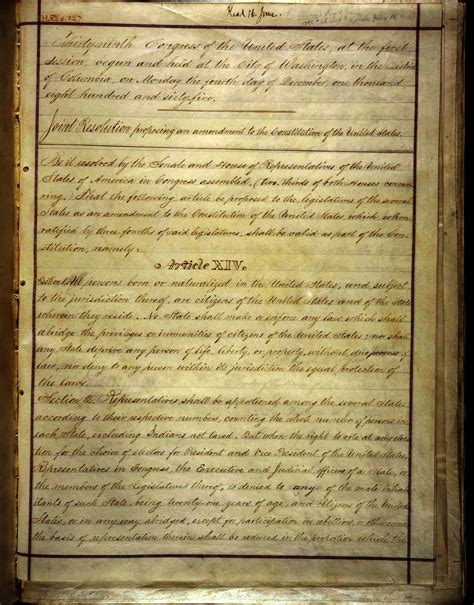 H.Res. 127
Recd 16 June
Thirty-ninth Congress of the United States, at the first
session, begun and held at the City of Washington, in the District
of Columbia, on Monday the fourth day of December, one thousand
eight hundred and sixty-five.
Joint Resolution proposing an amendment to the Constitution of the United States.
Be it resolved by the Senate and House of Representatives of the United
States of America in Congress assembled, (two-thirds of both Houses concur-
ring,) That the following article be proposed to the legislatures of the several
States as an amendment to the Constitution of the United States, which when
ratified by three-fourths of said legislatures, shall be valid as part of the Con-
stitution, namely:
Article XIV.
Section 1. All persons born or naturalized in the United States, and subject
to the jurisdiction thereof, are citizens of the United States and of the State
wherein they reside. No State shall make or enforce any law which shall
abridge the privileges or immunities of citizens of the United States; nor shall
any State deprive any person of life, liberty, or property, without due process of
law, nor deny to any person within its jurisdiction the equal protection of
the laws.
Section 2. Representatives shall be apportioned among the several States
according to their respective numbers, counting the whole number of persons in
each State, excluding Indians not taxed. But when the right to vote at any elec-
tion for the choice of electors for President and Vice President of the United States,
Representatives in Congress, the Executive and Judicial officers of a State, or
the members of the Legislature thereof, is denied to any of the male inhab-
itants of such State, being twenty-one years of age, and citizens of the United
States, or in any way abridged, except for participation in rebellion, or other crime,
the basis of representation therein shall be reduced in the proportion which the